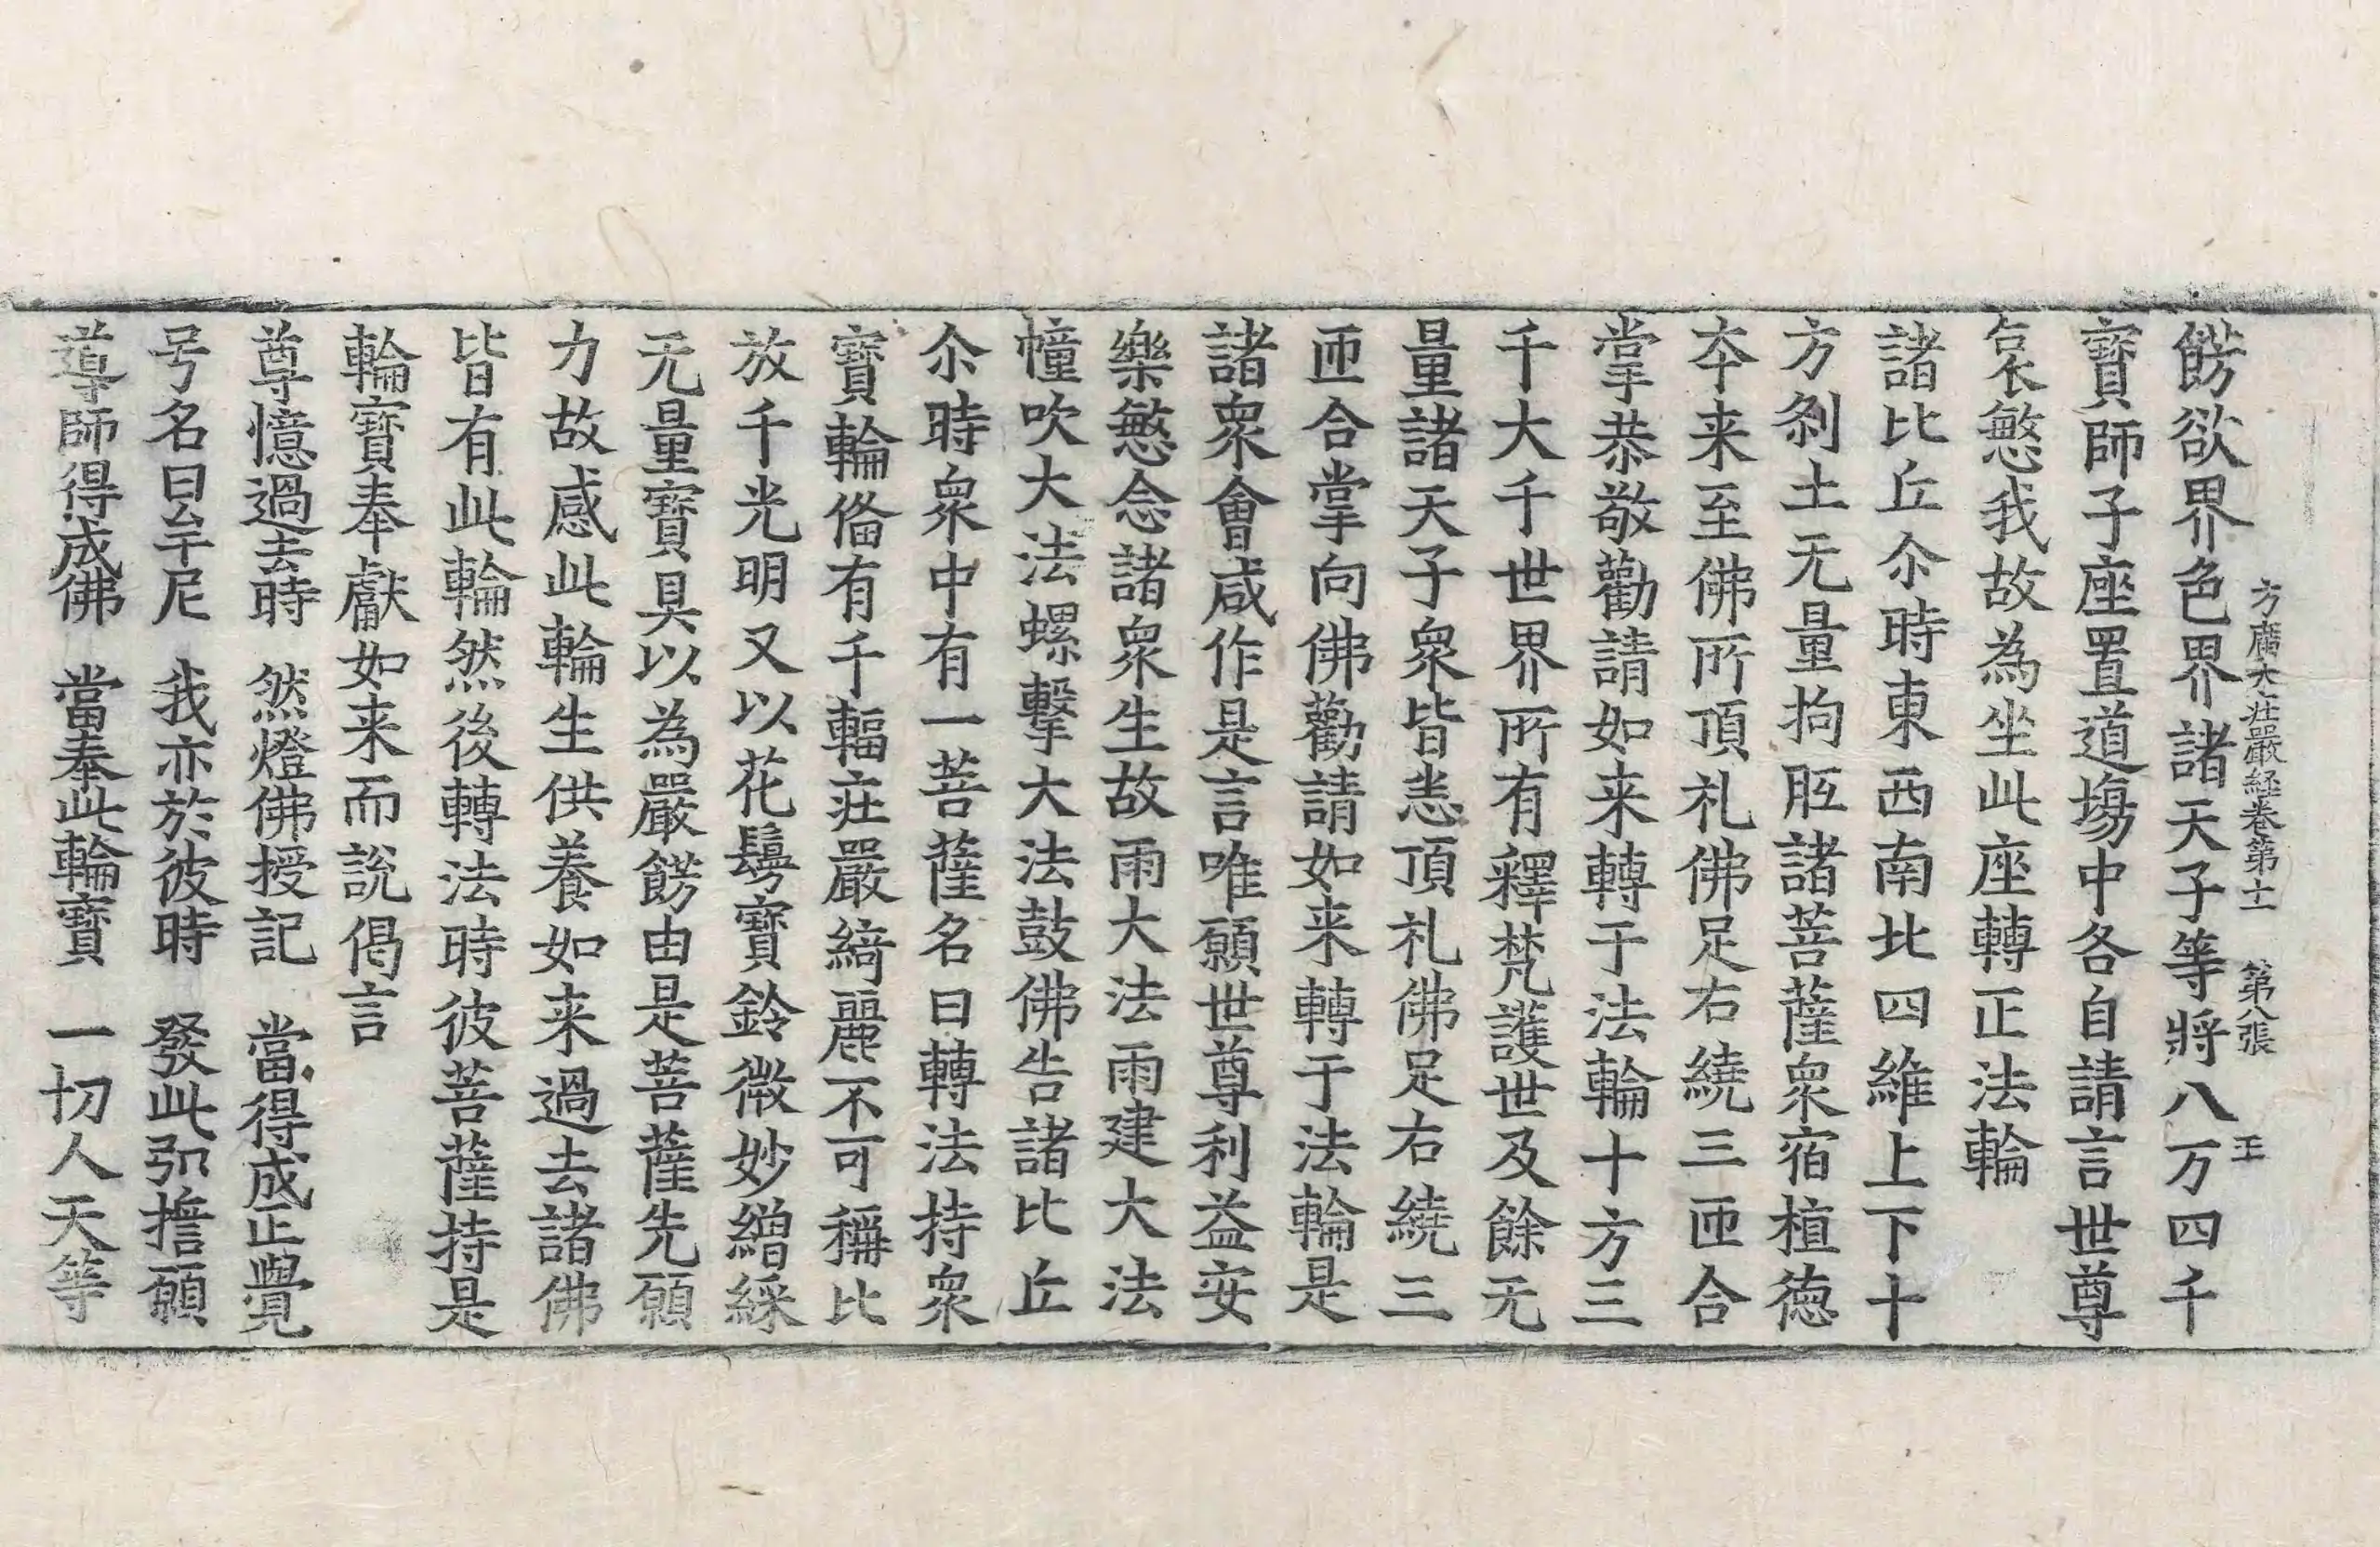 方廣大庄嚴経卷第十一 第八張 王
餝欲界色界諸天子等將八万四千
寶師子座置道場中各自請言世尊
哀慜我故為坐此座轉正法輪
諸比丘尒時東西南北四維上下十
方剎土无量拘胝諸菩薩衆宿植德
夲来至佛所頂礼佛足右繞三匝合
掌恭敬勸請如来轉于法輪十方三
千大千世界所有釋梵護世及餘无
量諸天子衆皆悉頂礼佛足右繞三
匝合掌向佛勸請如来轉于法輪是
諸衆會咸作是言唯願世尊利益安
樂慜念諸衆生故雨大法雨建大法
幢吹大法螺擊大法鼓佛告諸比丘
尒時衆中有一菩薩名曰轉法持衆
寶輪俻有千輻庄嚴綺麗不可稱比
放千光明又以花鬘寶鈴微妙繒綵
无量寶具以為嚴餝由是菩薩先願
力故感此輪生供養如来過去諸佛
皆有此輪然後轉法時彼菩薩持是
輪寶奉獻如来而說偈言
尊憶過去時 然燈佛授記 當得成正覺
号名曰牟尼 我亦於彼時 發此弘擔願
導師得成佛 當奉此輪寶 一切人天等